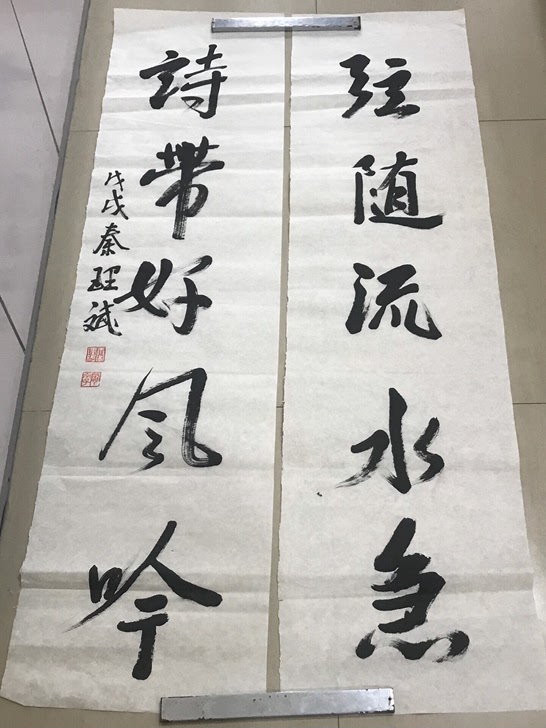 弦随流水急
詩帶好风吟
戊戌秦珏斌